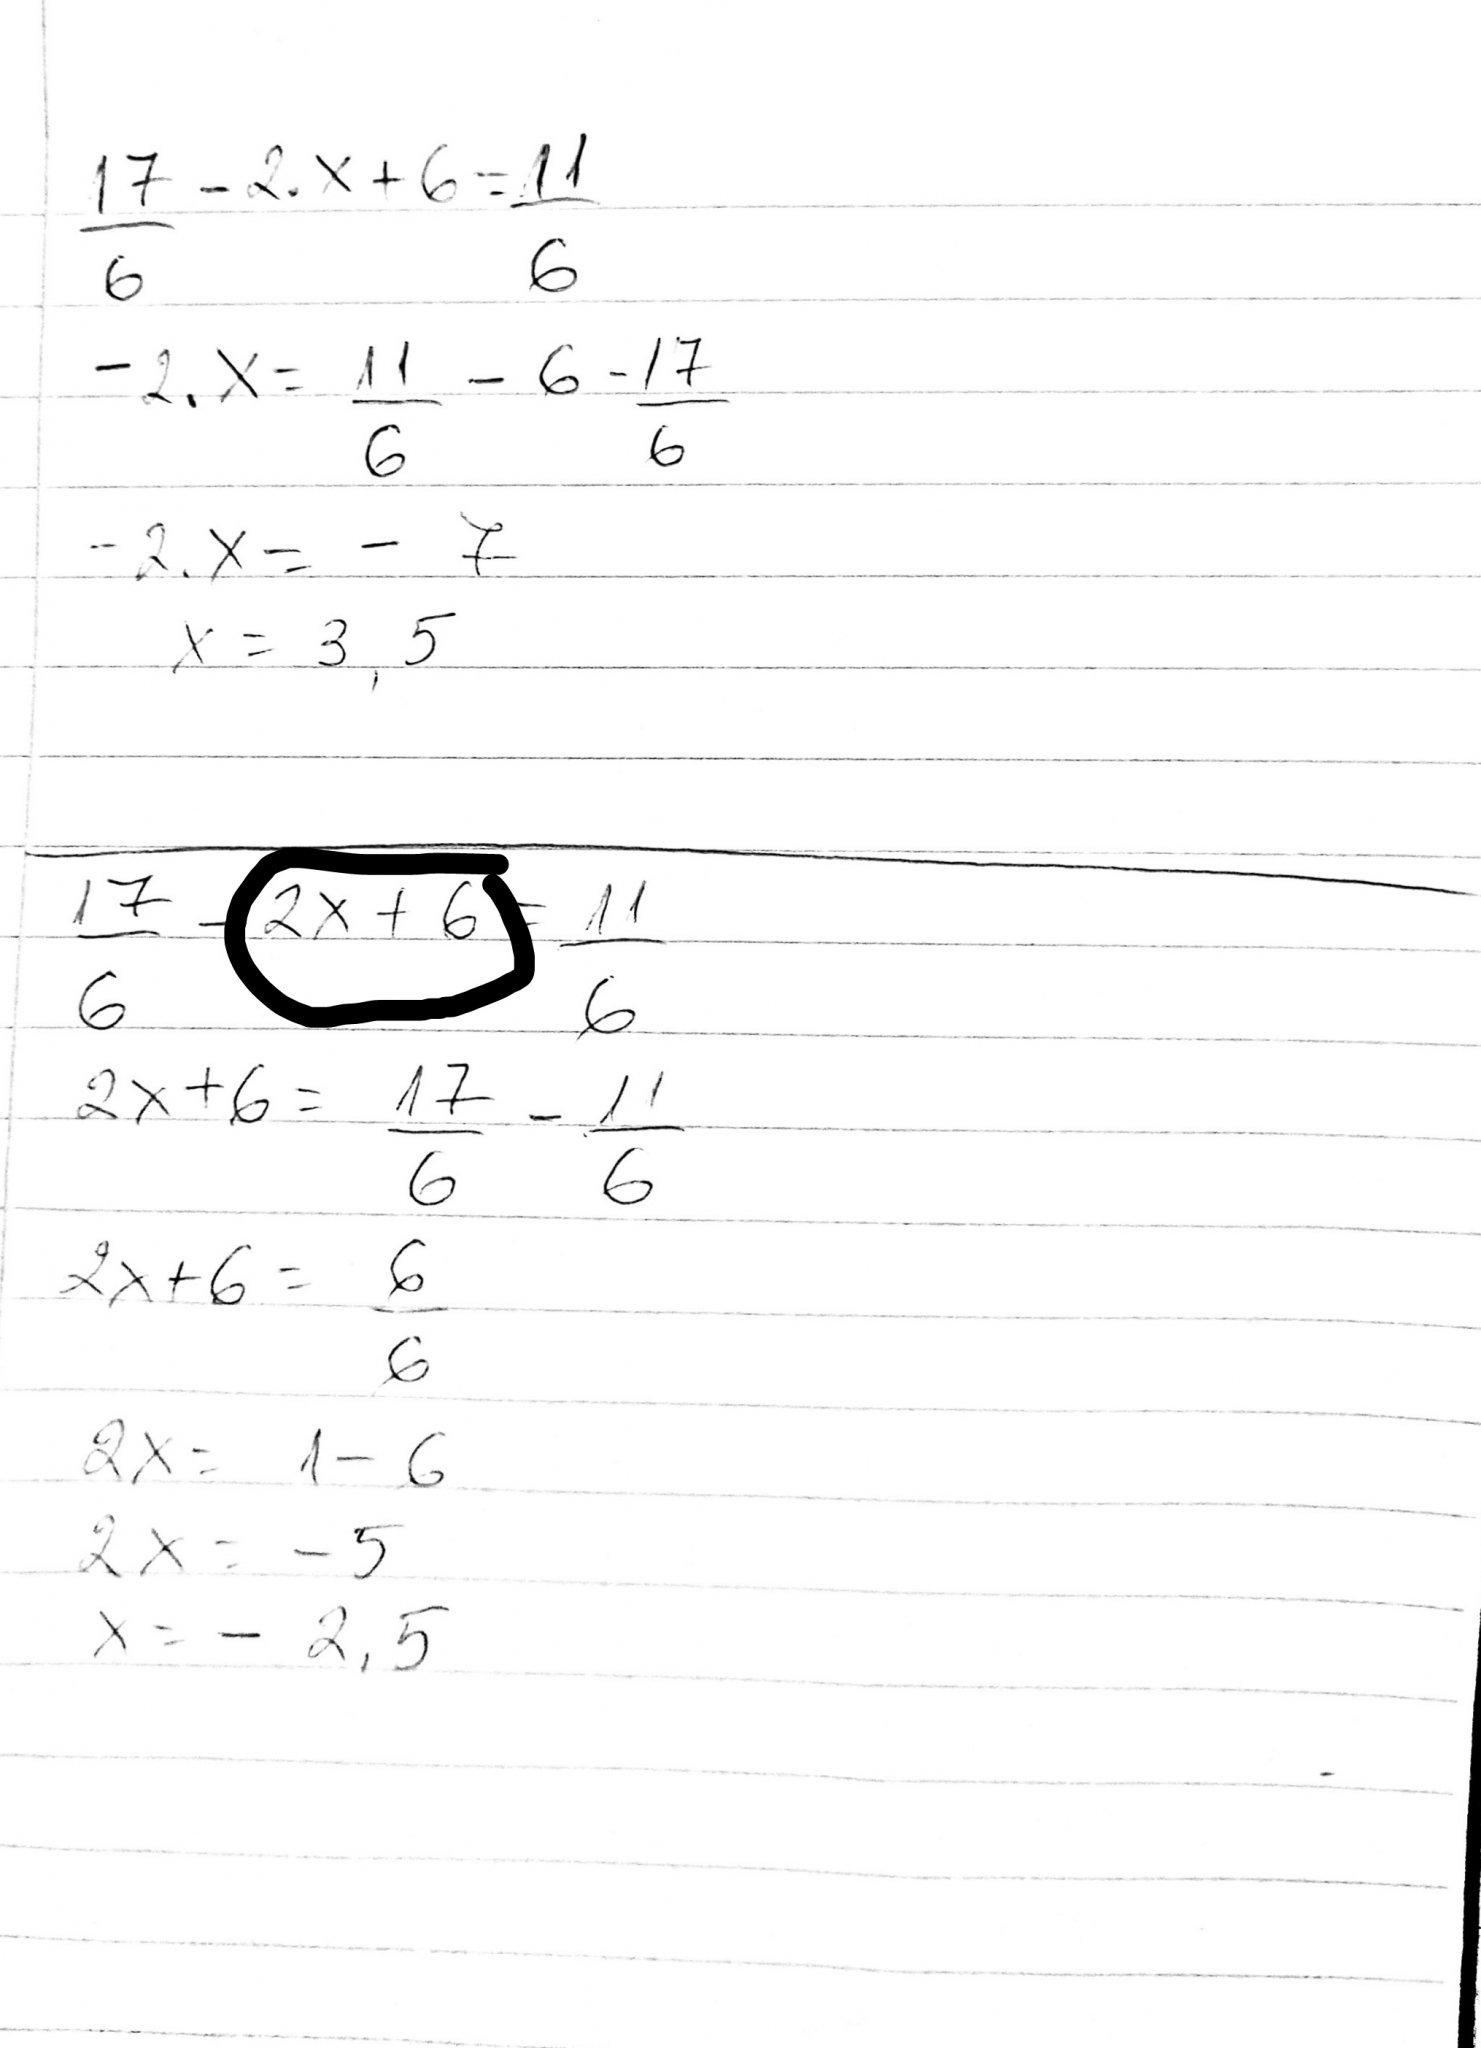 17/6 - 2.x + 6 = 11/6
-2.x = 11/6 - 6 - 17/6
-2.x = - 7
x = 3,5
17/6 - 2x + 6 = 11/6
2x + 6 = 17/6 - 11/6
2x + 6 = 6/6
2x = 1 - 6
2x = - 5
x = - 2,5